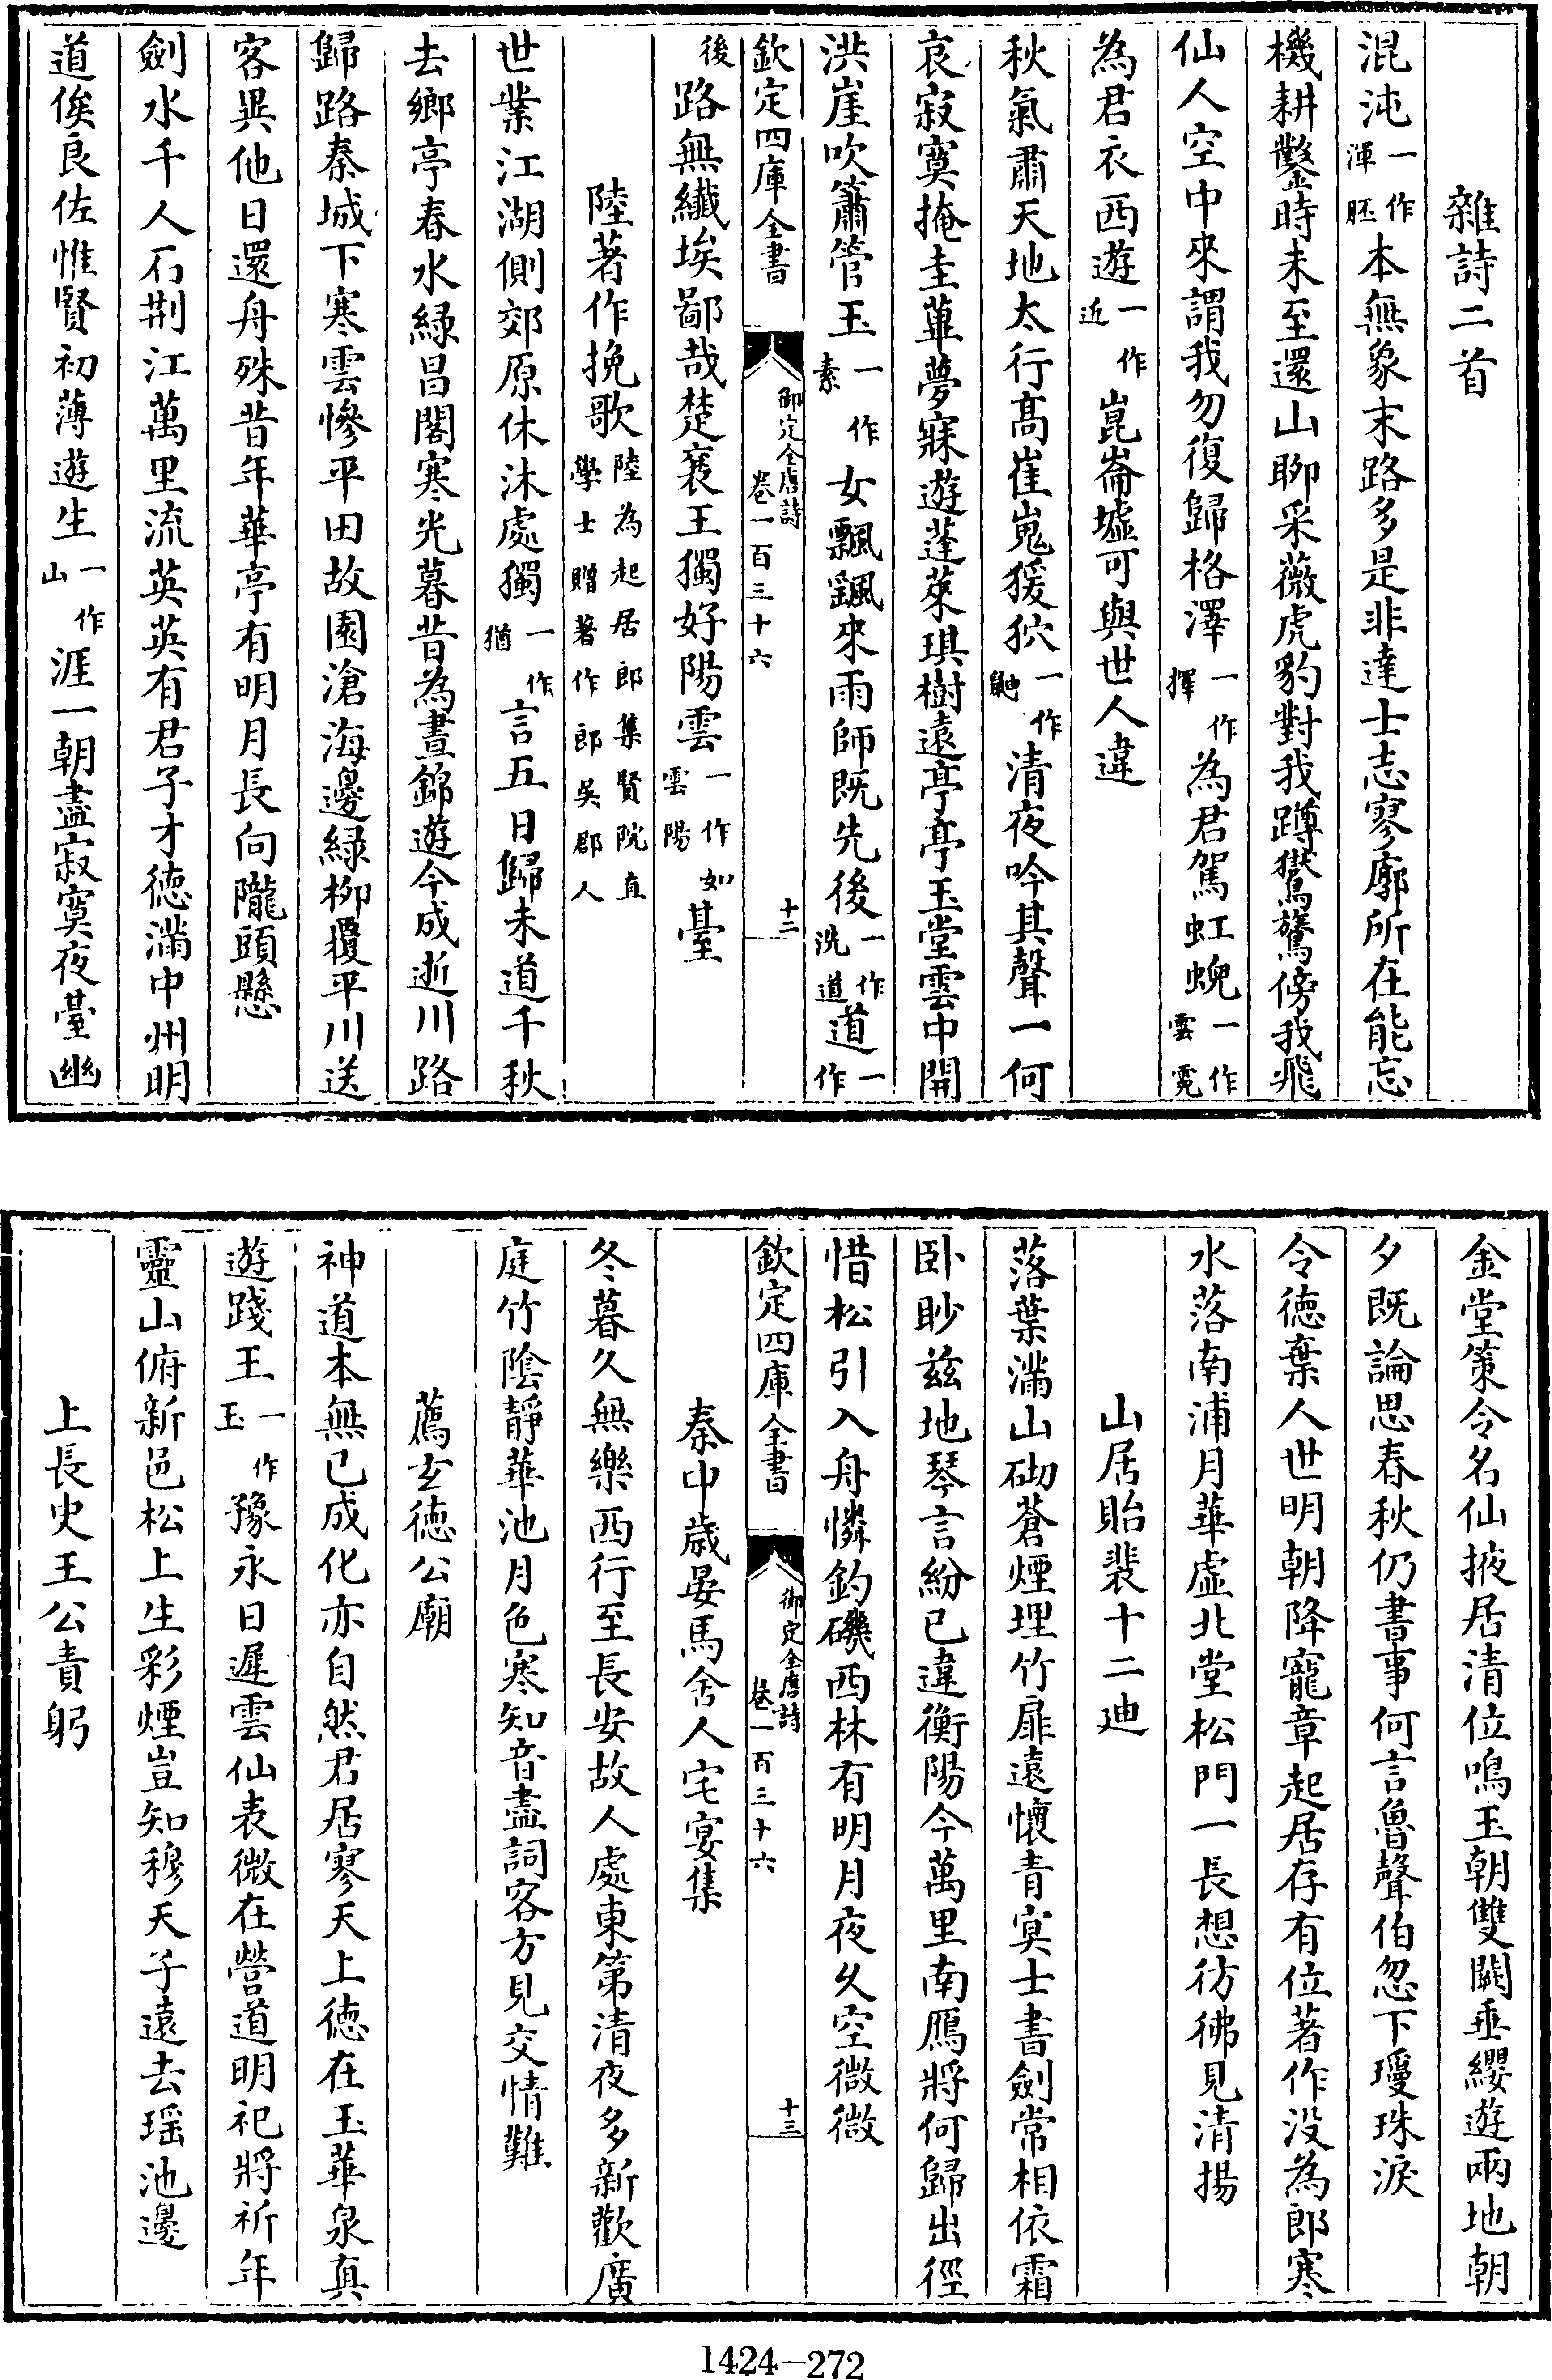 雜詩二首
混沌一作渾胚本無象末路多是非達士志寥廓所在能忘
機耕鑿時未至還山聊采薇虎豹對我蹲鸑鷟傍我飛
仙人空中來謂我勿復歸格澤一作擇為君駕虹蜺一作雲霓
為君衣西遊一作近崑崙墟可與世人違
秋氣肅天地太行髙崔嵬猨狖一作鼬清夜吟其聲一何
哀寂寞掩圭蓽夢寐遊蓬萊琪樹遠亭亭玉堂雲中開
洪崖吹簫管玉一作素女飄飖來雨師既先後一作洗道道一作
欽定四庫全書 御定全唐詩卷一百三十六 十二
後路無纎埃鄙哉楚襄王獨好陽雲一作如雲陽臺
陸著作挽歌陸為起居郎集賢院直學士贈著作郎吳郡人
世業江湖側郊原休沐處獨一作猶言五日歸未道千秋
去鄉亭春水緑昌閣寒光暮昔為晝錦遊今成逝川路
歸路秦城下寒雲慘平田故園滄海邊緑柳覆平川送
客異他日還舟殊昔年華亭有明月長向隴頭懸
劍水千人石荆江萬里流英英有君子才徳滿中州明
道俟良佐惟賢初薄遊生一作山涯一朝盡寂寞夜臺幽
金堂策令名仙掖居清位鳴玉朝雙闕垂纓遊兩地朝
夕既論思春秋仍書事何言魯聲伯忽下瓊珠淚
令徳棄人世明朝降寵章起居存有位著作没為郎寒
水落南浦月華虚北堂松門一長想彷彿見清揚
山居貽裴十二迪
落葉滿山砌蒼煙埋竹扉遠懷青冥士書劍常相依霜
卧眇兹地琴言紛已違衡陽今萬里南雁將何歸出徑
惜松引入舟憐釣磯西林有明月夜乆空微微
欽定四庫全書 御定全唐詩卷一百三十六 十三
秦中歲晏馬舍人宅宴集
冬暮久無樂西行至長安故人處東第清夜多新歡廣
庭竹陰靜華池月色寒知音盡詞客方見交情難
薦玄徳公廟
神道本無已成化亦自然君居寥天上徳在玉華泉真
遊踐王一作玉豫永日遲雲仙表微在營道明祀將祈年
靈山俯新邑松上生彩煙豈知穆天子遠去瑶池邊
上長史王公責躬
1424—272